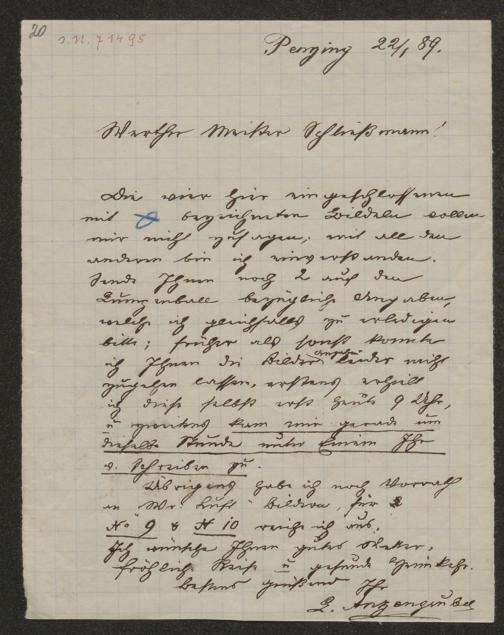 20
I.N. 71495
Penzing 22/1 89.
Werther Meister Schließmann!
Die vier hier eingeschlossenen
mit bezeichneten Bildeln wollen
mir nicht zusagen, mit all den
anderen bin ich einverstanden.
Sende Ihnen noch 2 auf den
Lumpenball bezügliche Angaben,
welche ich gleichfalls zu erledigen
bitte; früher als sonst konnte
ich Ihnen die Bilder Angaben leider nicht
zugehen lassen, erstens erhielt
ich diese selbst erst heute 9 Uhr,
u zweitens kam mir gerade um
dieselbe Stunde unter Einem Ihr
Schreiben zu.
Übrigens habe ich noch Vorrath
an Bildern, für
No 9 & N 10 reiche ich aus.
Ich wünsche Ihnen gutes Wetter,
fröhliche Reise u gesunde Heimkehr.
Bestens grüßend Ihr
L. Anzengruber